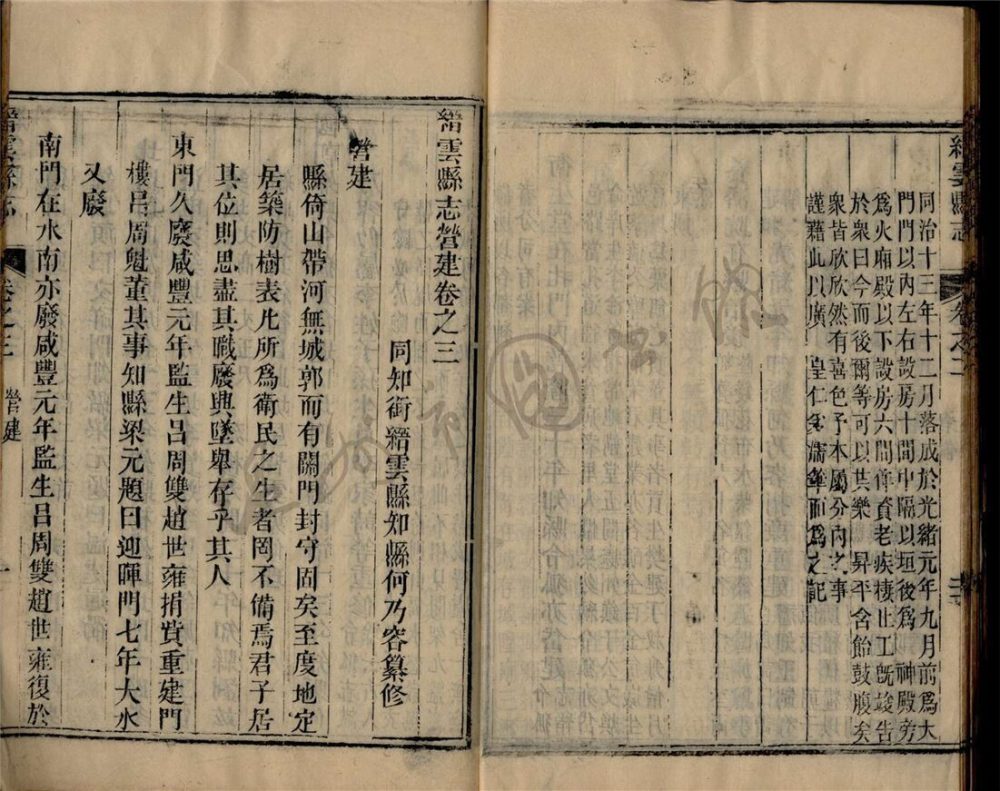 縉雲縣志
卷之二
同治十三年十二月落成於光緒元年九月前爲大
門門以內左右設房十間中隔以垣後爲 神殿旁
爲火廂殿以下設房六間俾貧老疾棲止工既竣告
於衆曰今而後爾等可以其樂 昇平含飴鼓腹矣
衆皆欣欣然有喜色予本屬分內之事
謹藉此以廣 皇仁 而爲之記
縉雲縣志營建卷之三
同知銜縉雲縣知縣何乃容纂修
營建
縣倚山帶河無城郭而有關門封守固矣至度地定
居築防樹表凡所爲衛民之生者罔不備焉君子居
其位則思盡其職廢興墜舉存乎其人
東門久廢咸豐元年監生呂周雙趙世雍捐貲重建門
樓呂周魁董其事知縣梁元題曰迎暉門七年大水
又廢
南門在水南亦廢咸豐元年監生呂周雙趙世雍復於
縉雲縣志
卷之三
營建
一